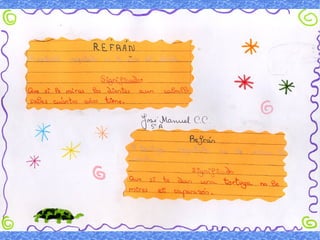 REFRÁN
Significado
Que si le miras los dientes a un caballo
sabes cuántos años tiene.
José Manuel C.C.
5ºA
Refrán
Significado
Que si te dan una tortuga no le
mires el caparazón.